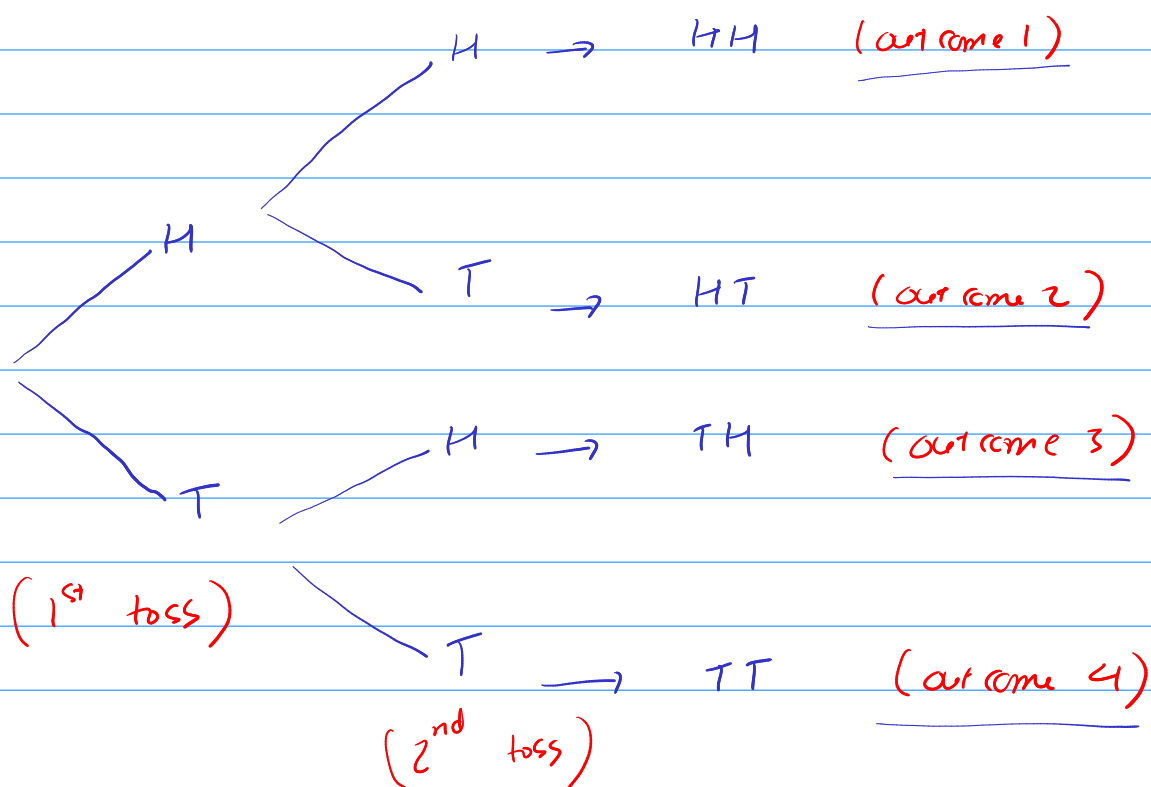 H → HH (outcome 1)
H
T → HT (outcome 2)
H → TH (outcome 3)
T
(1st toss)
T → TT (outcome 4)
(2nd toss)